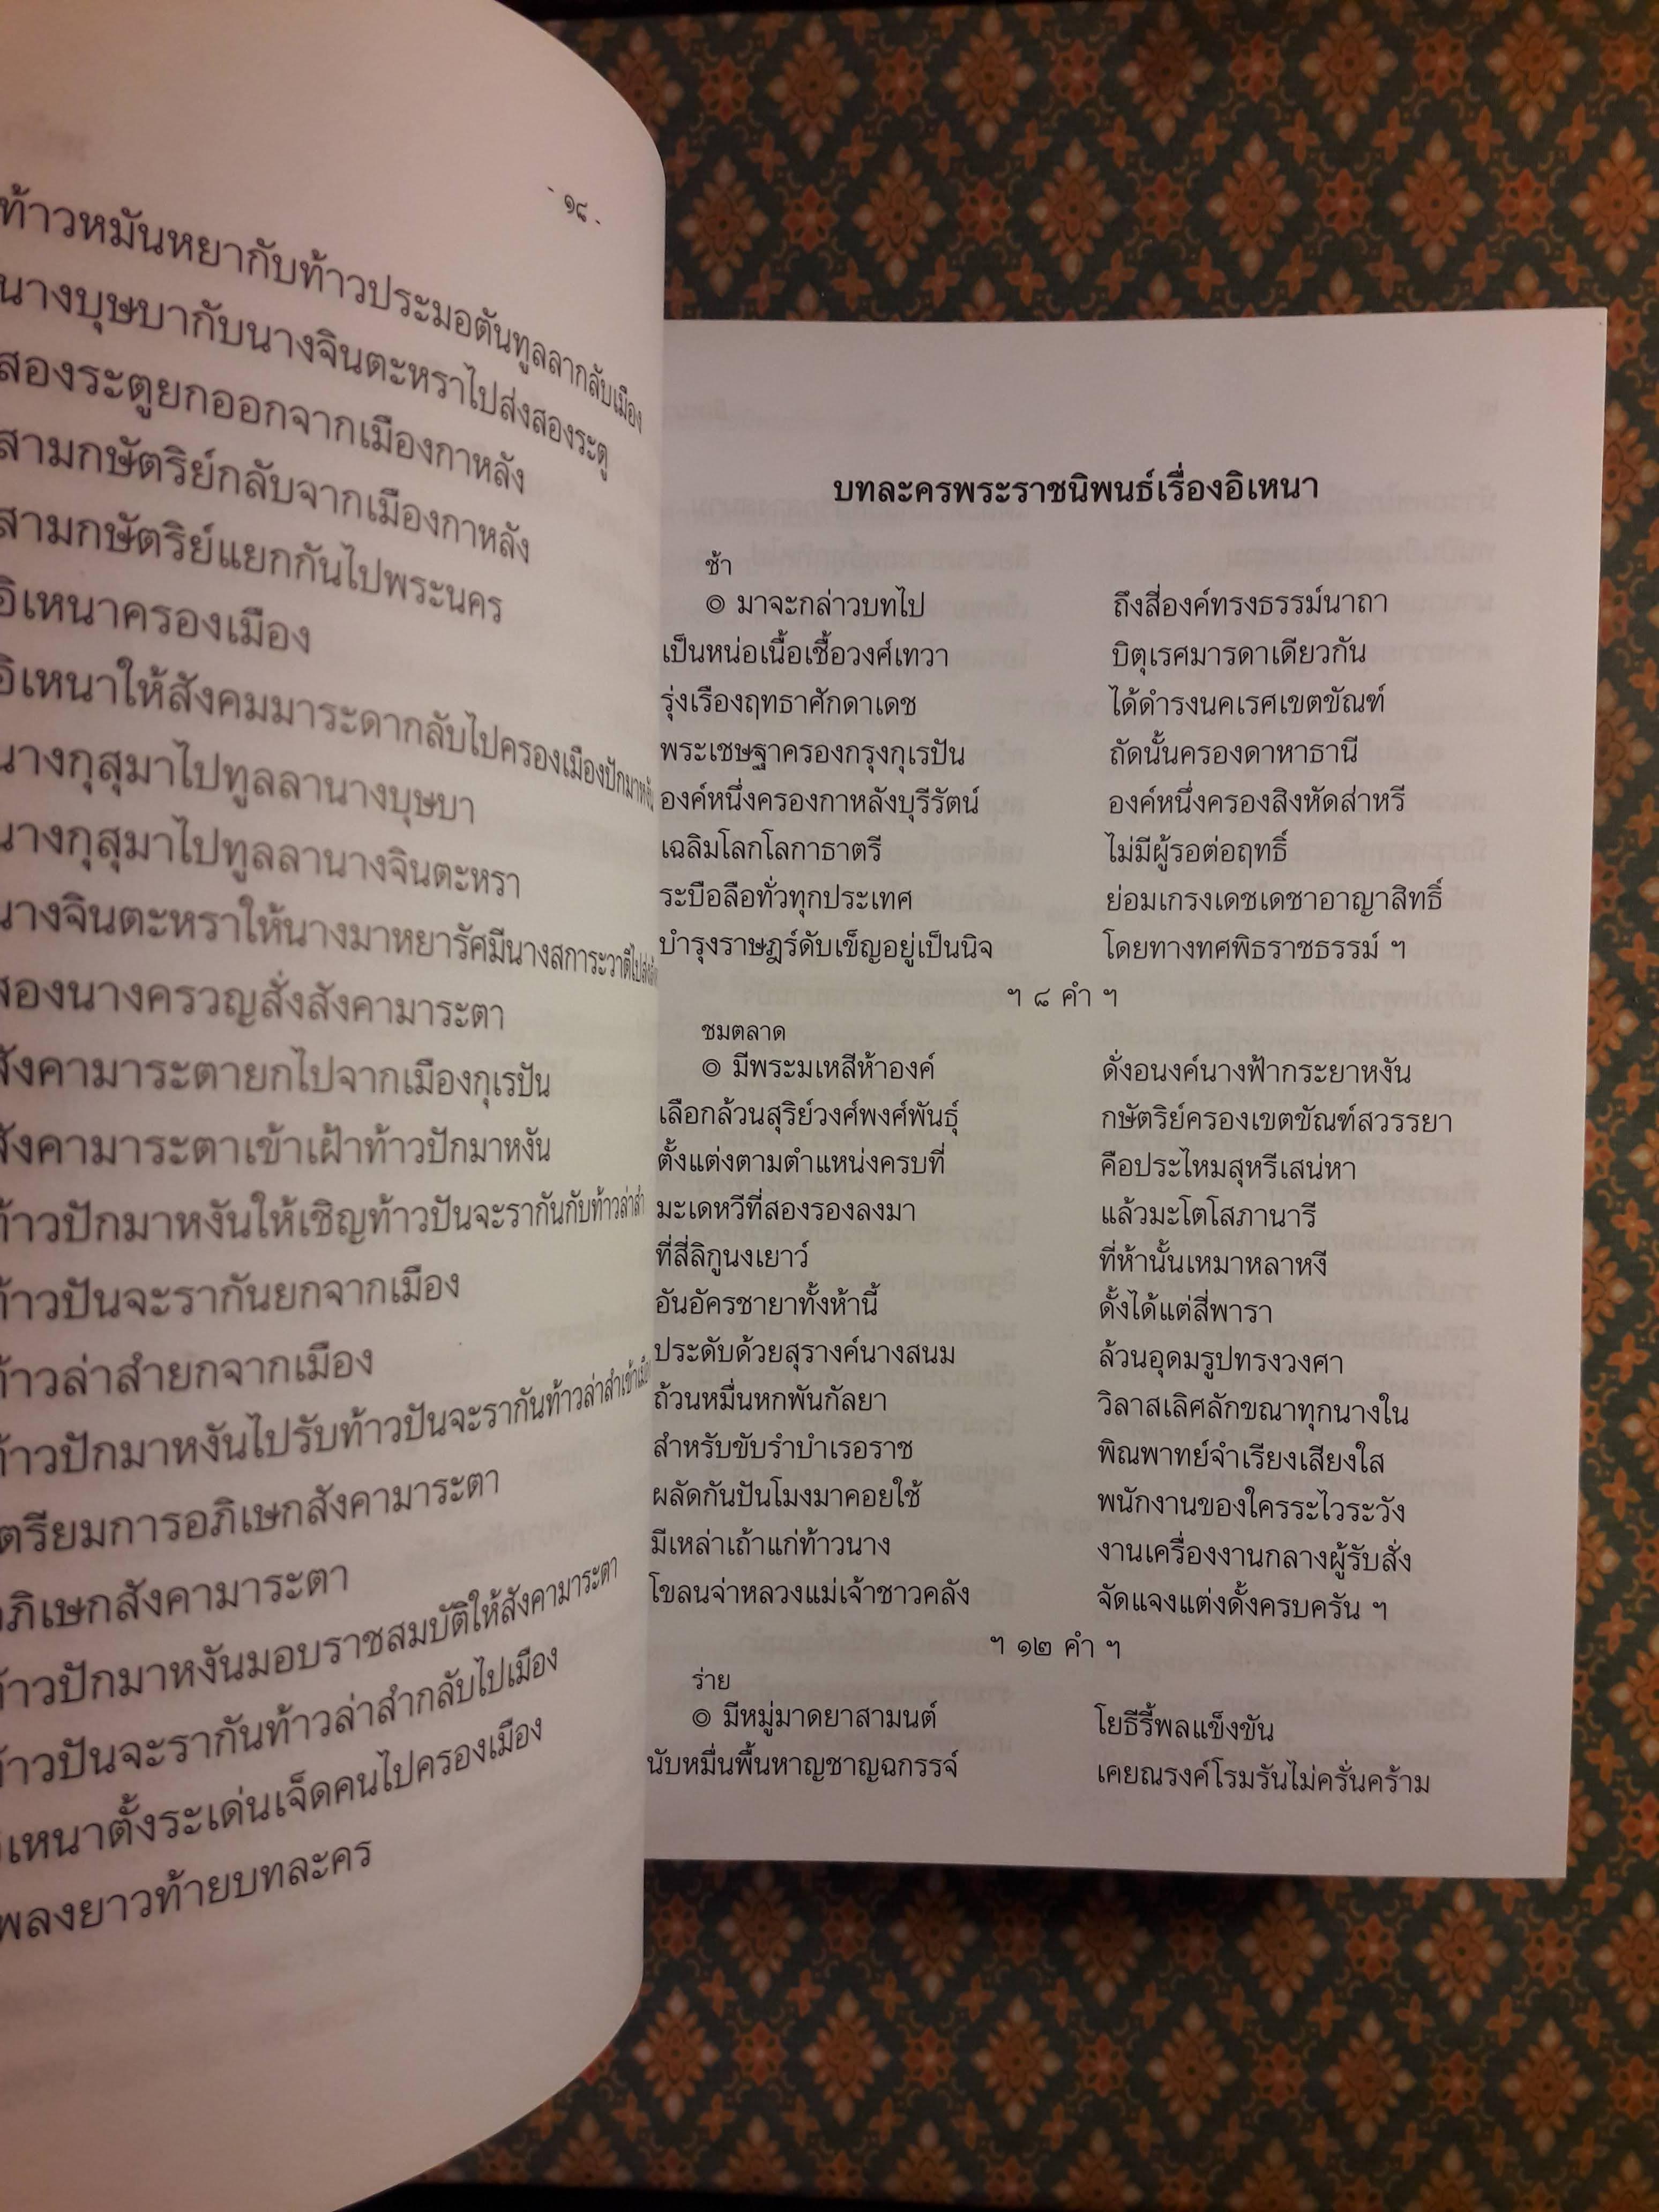 - ๑๘ -
ท้าวหมันหยากับท้าวประมอตันทูลลากลับเมือง
นางบุษบากับนางจินตะหราไปส่งสองระตู
สองระตูยกออกจากเมืองกาหลัง
สามกษัตริย์กลับจากเมืองกาหลัง
สามกษัตริย์แยกกันไปพระนคร
อิเหนาครองเมือง
อิเหนาให้สังคมมาระดากลับไปครองเมืองปักมาหงัน
นางกุสุมาไปทูลลานางบุษบา
นางกุสุมาไปทูลลานางจินตะหรา
นางจินตะหราให้นางมาหยารัศมีนางสการะวาตีไปส่ง
สองนางครวญสั่งสังคามาระตา
สังคามาระตายกไปจากเมืองกุเรปัน
สังคามาระตาเข้าเฝ้าท้าวปักมาหงัน
ท้าวปักมาหงันให้เชิญท้าวปันจะรากันกับท้าวล่าสำ
ท้าวปันจะรากันยกจากเมือง
ท้าวล่าสำยกจากเมือง
ท้าวปักมาหงันไปรับท้าวปันจะรากันท้าวล่าสำเข้าเมือง
เตรียมการอภิเษกสังคามาระตา
อภิเษกสังคามาระตา
ท้าวปักมาหงันมอบราชสมบัติให้สังคามาระตา
ท้าวปันจะรากันท้าวล่าสำกลับไปเมือง
อิเหนาตั้งระเด่นเจ็ดคนไปครองเมือง
เพลงยาวท้ายบทละคร
บทละครพระราชนิพนธ์เรื่องอิเหนา
ช้า
๏ มาจะกล่าวบทไป ถึงสี่องค์ทรงธรรม์นาถา
เป็นหน่อเนื้อเชื้อวงศ์เทวา บิตุเรศมารดาเดียวกัน
รุ่งเรืองฤทธาศักดาเดช ได้ดำรงนคเรศเขตขัณฑ์
พระเชษฐาครองกรุงกุเรปัน ถัดนั้นครองดาหาธานี
องค์หนึ่งครองกาหลังบุรีรัตน์ องค์หนึ่งครองสิงหัดส่าหรี
เฉลิมโลกโลกาธาตรี ไม่มีผู้รอต่อฤทธิ์
ระบือลือทั่วทุกประเทศ ย่อมเกรงเดชเดชาอาญาสิทธิ์
บำรุงราษฎร์ดับเข็ญอยู่เป็นนิจ โดยทางทศพิธราชธรรม์ ฯ
ฯ ๘ คำ ฯ
ชมตลาด
๏ มีพระมเหสีห้าองค์ ดั่งอนงค์นางฟ้ากระยาหงัน
เลือกล้วนสุริย์วงศ์พงศ์พันธุ์ กษัตริย์ครองเขตขัณฑ์สวรรยา
ตั้งแต่งตามตำแหน่งครบที่ คือประไหมสุหรีเสน่หา
มะเดหวีที่สองรองลงมา แล้วมะโตโสภานารี
ที่สี่ลิกูนงเยาว์ ที่ห้านั้นเหมาหลาหงี
อันอัครชายาทั้งห้านี้ ดั้งได้แต่สี่พารา
ประดับด้วยสุรางค์นางสนม ล้วนอุดมรูปทรงวงศา
ถ้วนหมื่นหกพันกัลยา วิลาสเลิศลักขณาทุกนางใน
สำหรับขับรำบำเรอราช พิณพาทย์จำเรียงเสียงใส
ผลัดกันปันโมงมาคอยใช้ พนักงานของใครระไวระวัง
มีเหล่าเถ้าแก่ท้าวนาง งานเครื่องงานกลางผู้รับสั่ง
โขลนจ่าหลวงแม่เจ้าชาวคลัง จัดแจงแต่งดั้งครบครัน ฯ
ฯ ๑๒ คำ ฯ
ร่าย
๏ มีหมู่มาดยาสามนต์ โยธีรี้พลแข็งขัน
นับหมื่นพื้นหาญชาญฉกรรจ์ เคยณรงค์โรมรันไม่ครั่นคร้าม